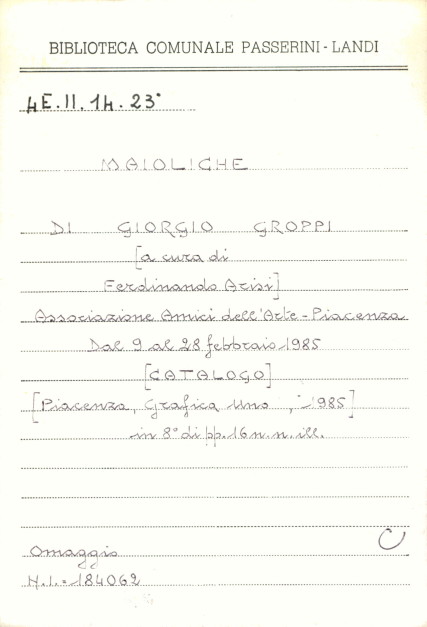 BIBLIOTECA COMUNALE PASSERINI - LANDI
4E.II.14.23°
MAIOLICHE
DI GIORGIO GROPPI
[a cura di
Ferdinando Arisi]
Associazione Amici dell'Arte - Piacenza
Dal 9 al 28 febbraio 1985
[CATALOGO]
[Piacenza, Grafica Uno, 1985]
in 8° di pp. 16 n.n. ill.
C
Omaggio
N.I. = 184062